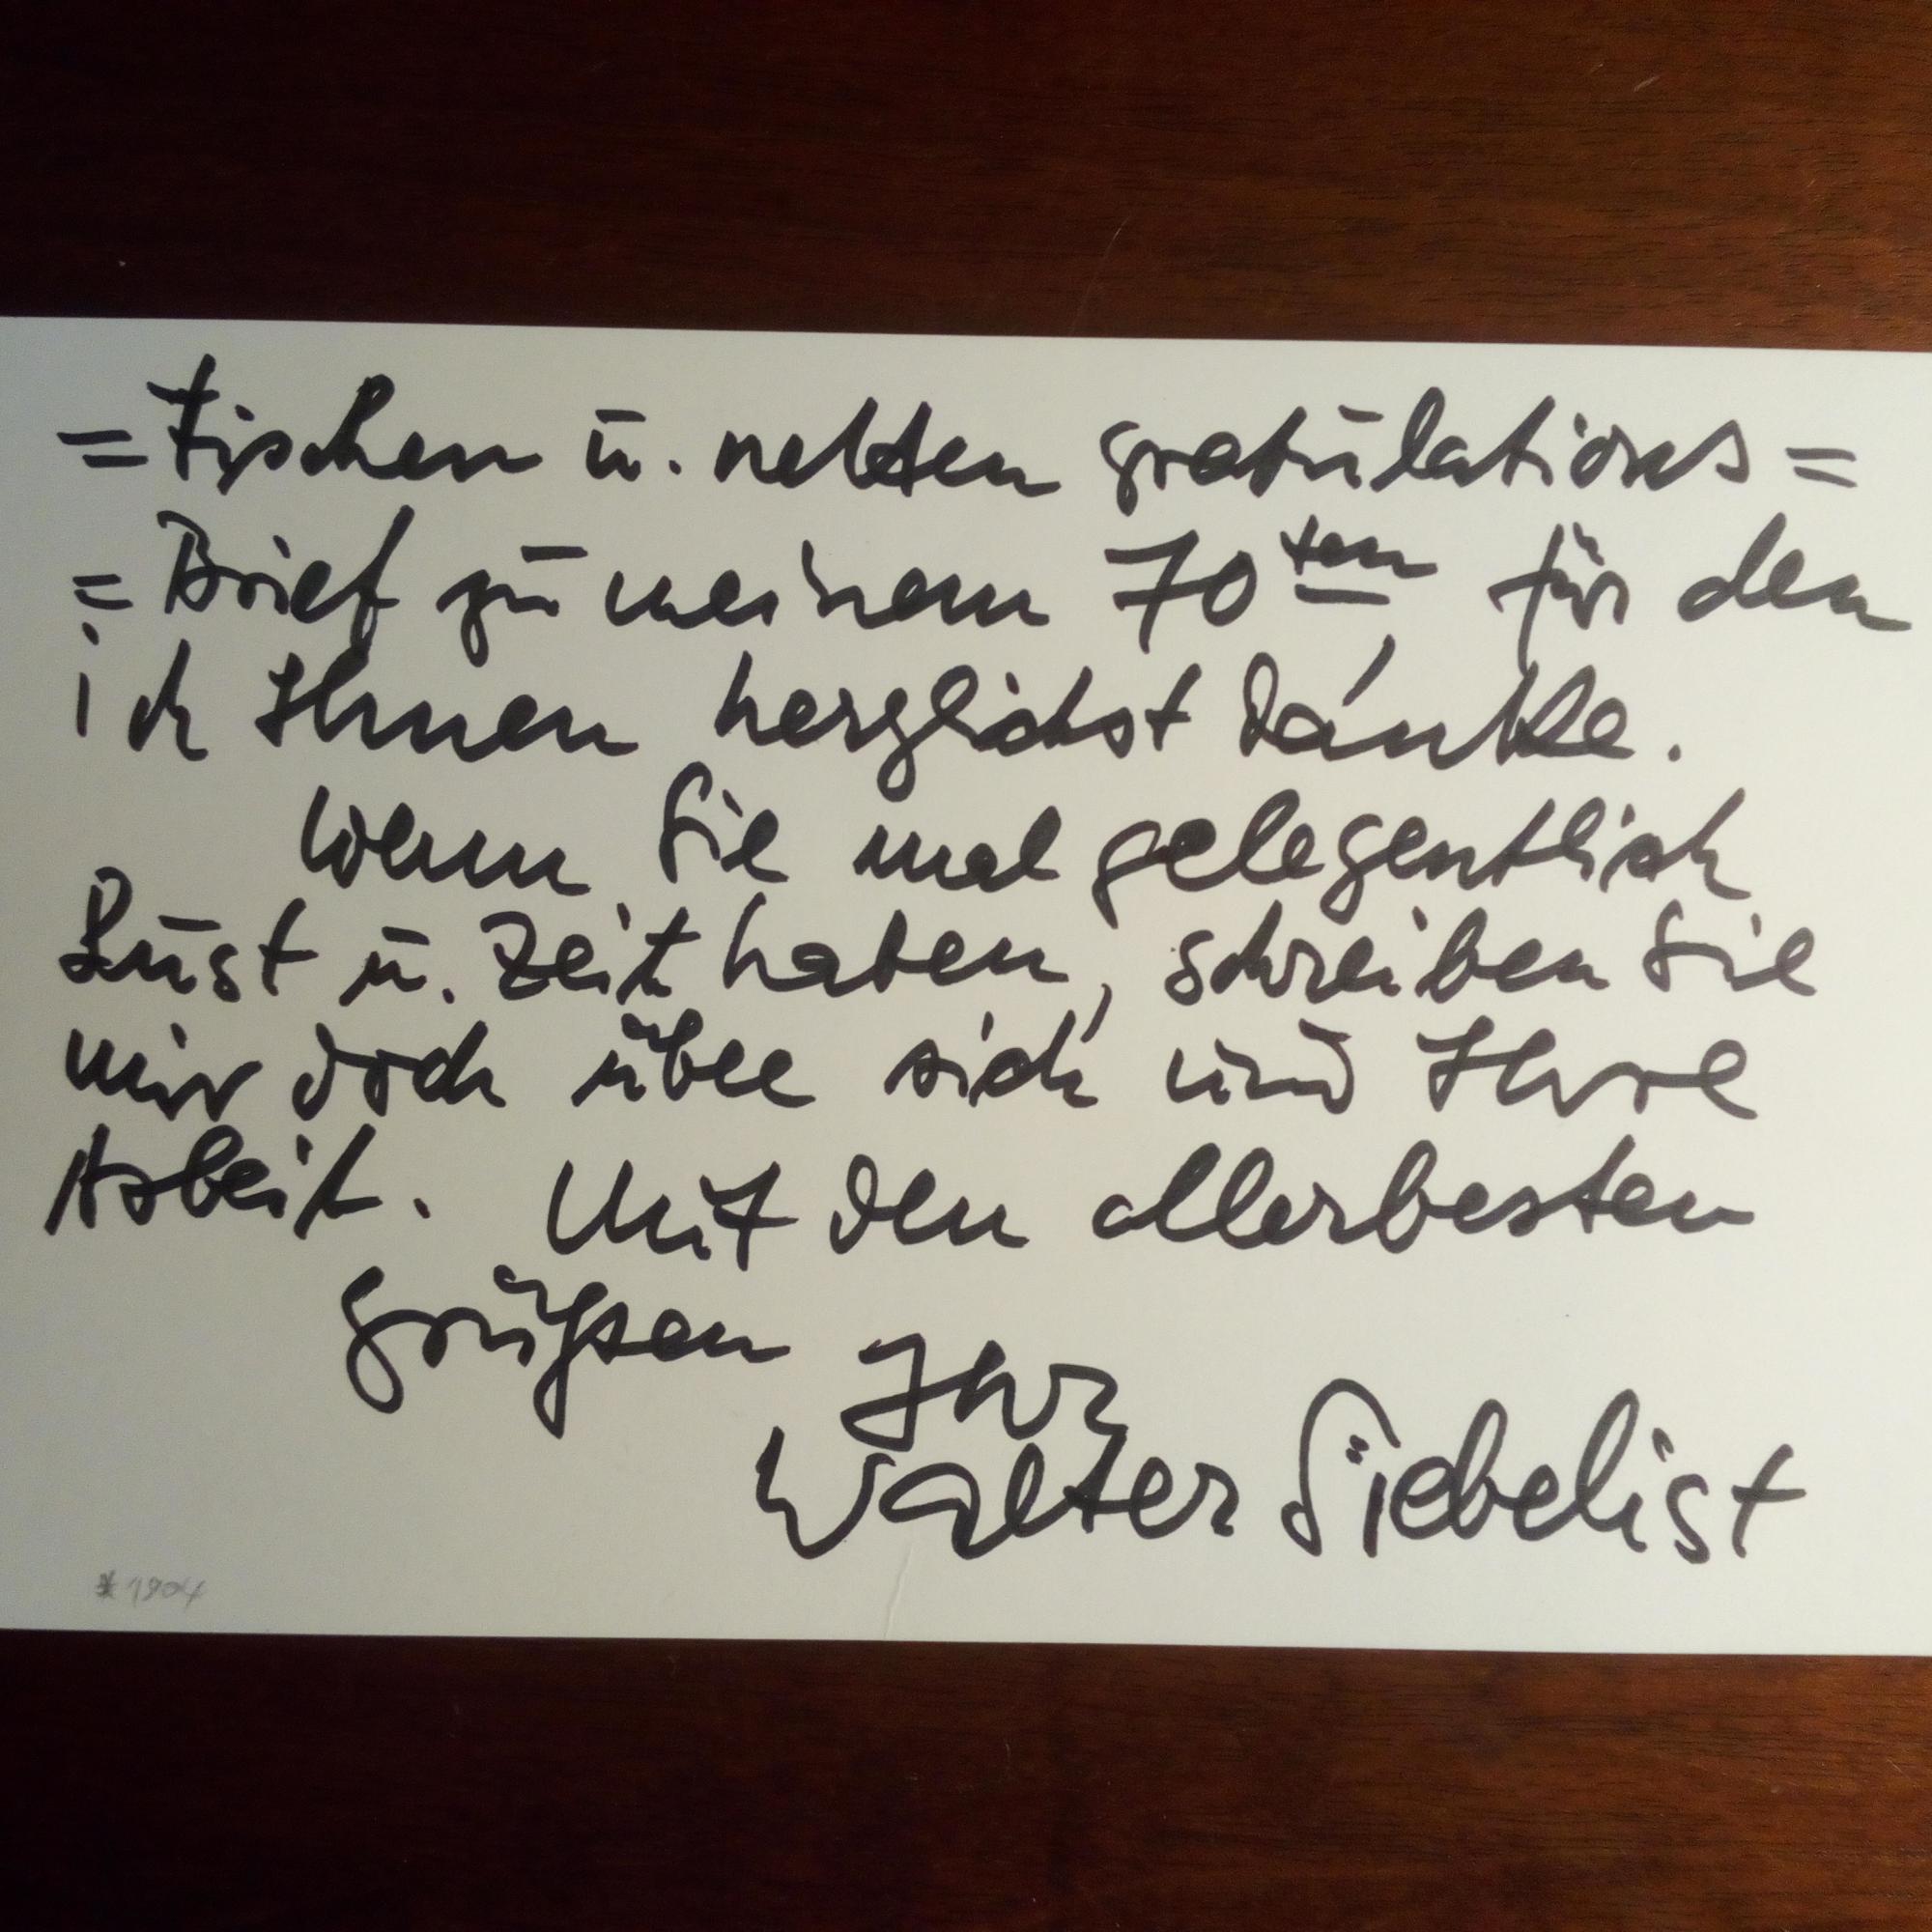 =tischen u. netten gratulations=
=Brief zu meinem 70ten für den
ich Ihnen herzlichst danke.
Wenn Sie mal gelegentlich
Lust u. Zeit haben, schreiben Sie
mir doch über sich und Ihre
Arbeit. Mit den allerbesten
grüßen Ihr
Walter Siebelist
*1904